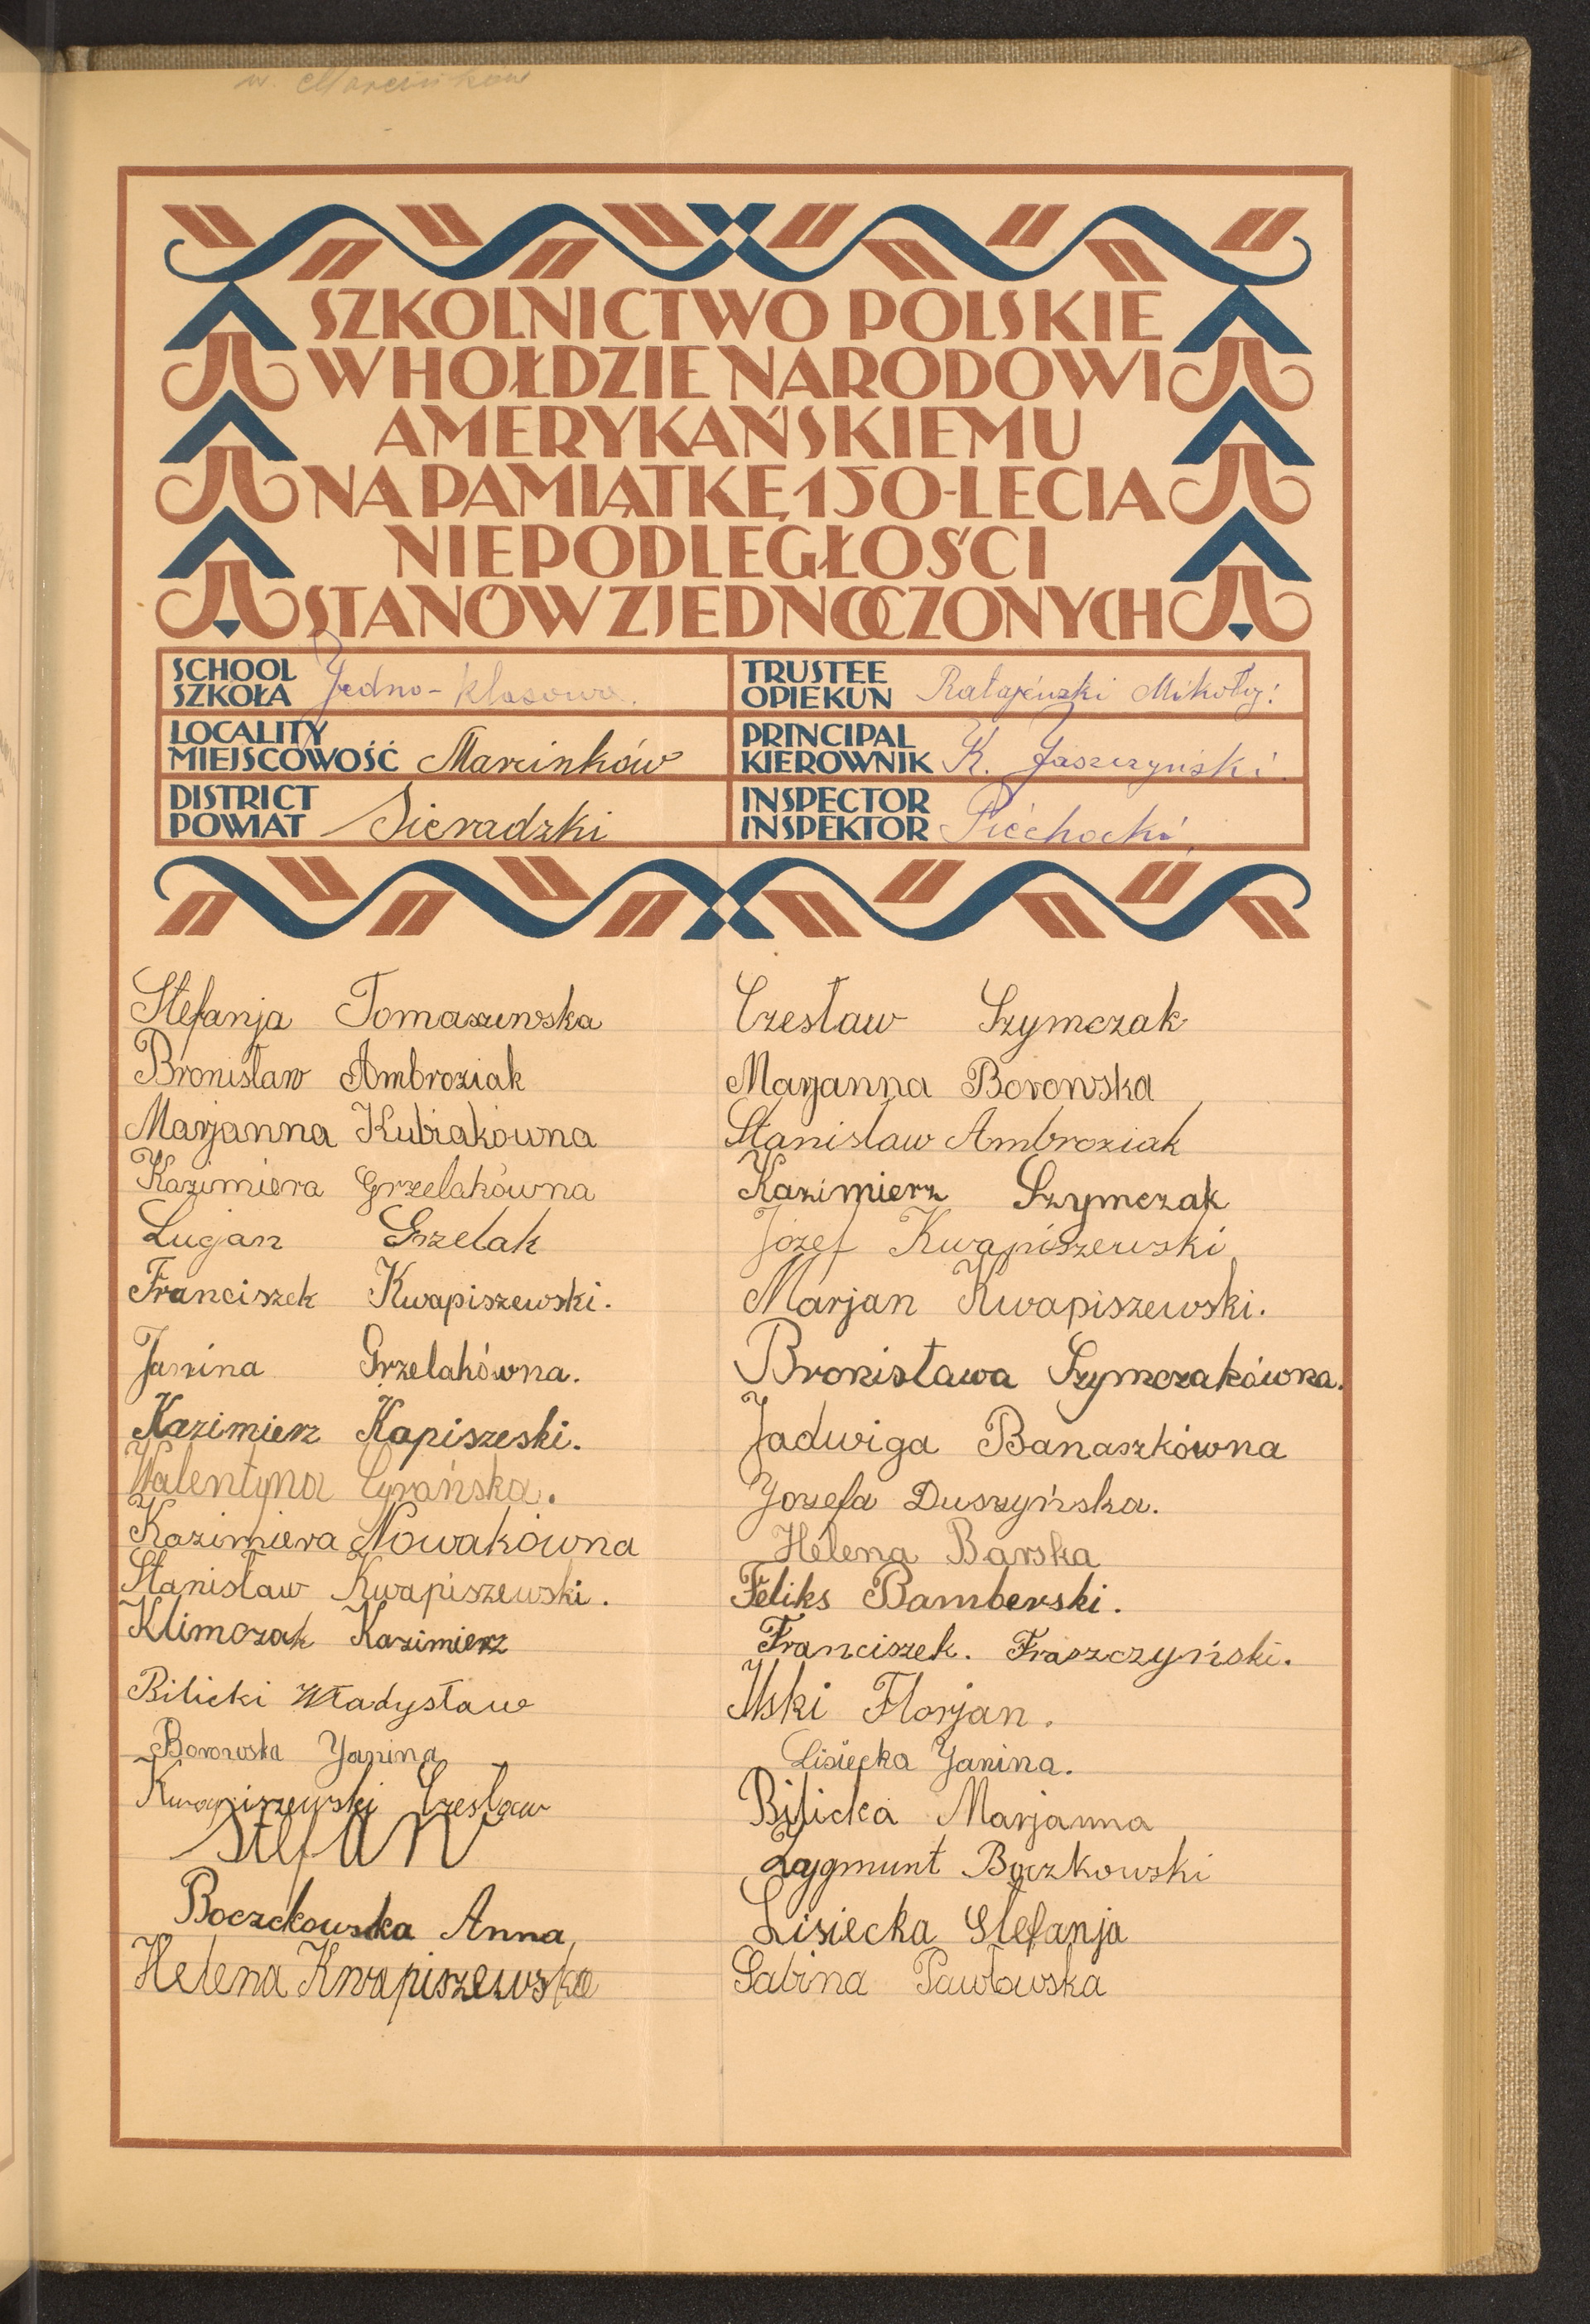 w. Marcinków
SZKOLNICTWO POLSKIE
W HOŁDZIE NARODOWI
AMERYKAŃSKIEMU
NA PAMIĄTKĘ 150-LECIA
NIEPODLEGŁOŚCI
STANÓW ZJEDNOCZONYCH
SCHOOL
SZKOŁA Jedno-klasowa.
TRUSTEE
OPIEKUN Ratajczski Mikołaj:
LOCALITY
MIEJSCOWOŚĆ Marcinków
PRINCIPAL
KIEROWNIK K. Jaszczyński
DISTRICT
POWIAT Sieradzki
INSPECTOR
INSPEKTOR Piechocki
Stefanja Tomaszewska
Bronisław Ambroziak
Marjanna Kubiakówna
Kazimiera Grzelakówna
Lucjan Grzelak
Franciszek Kwapiszewski.
Janina Grzelakówna.
Kazimierz Kapiszeski.
Walentyna Cyrańska.
Kazimiera Nowakówna
Stanisław Kwapiszewski.
Klimczak Kazimierz
Bilicki Władysław
Borowska Janina
Kwapiszewski Czesław
Stefan
Boczckowska Anna,
Helena Kwapiszewska
Czesław Szymczak
Maryanna Borowska
Stanisław Ambroziak
Kazimierz Szymczak
Józef Kwapiszewski
Marjan Kwapiszewski.
Bronisława Szymczakówna.
Jadwiga Banaszkówna
Jozefa Duszyńska.
Helena Barska
Feliks Bamberski.
Franciszek. Fraszczyński.
Ilski Florjan.
Lisiecka Janina.
Bilicka Marjanna
Zygmunt Boczkowski
Lisiecka Stefanja
Sabina Pawłowska